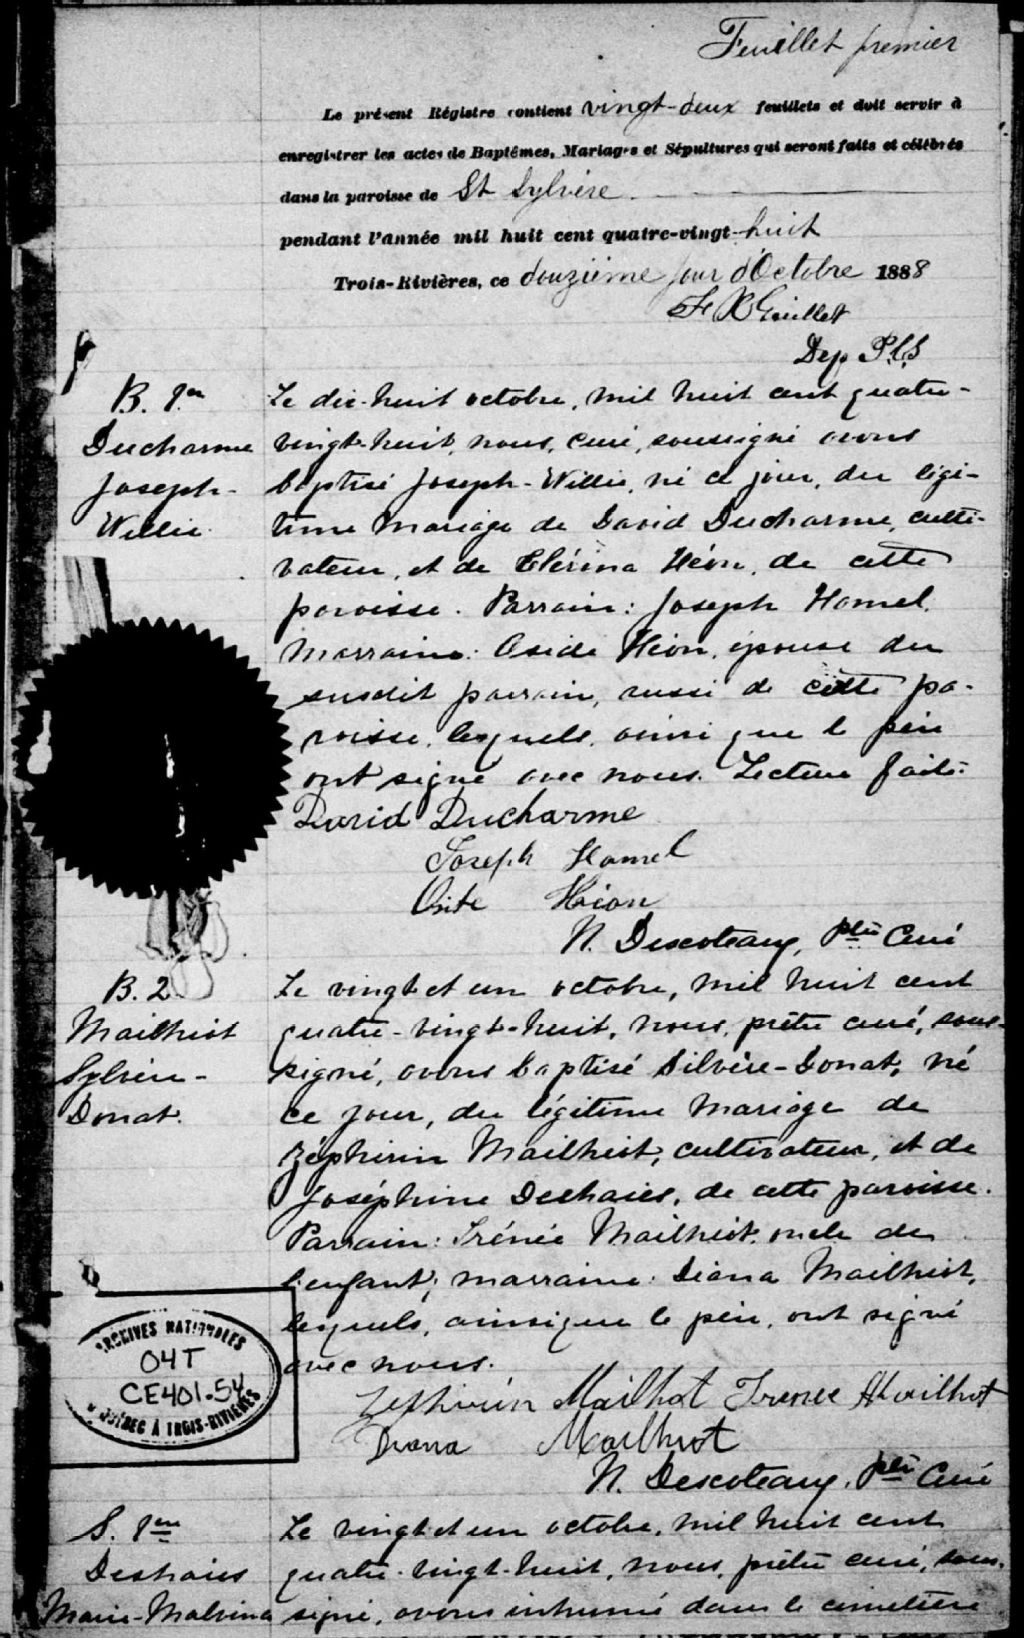 Feuillet premier
Le présent Régistre contient vingt-deux feuillets et doit servir à
enregistrer les actes de Baptêmes, Mariages et Sépultures qui seront faits et célébrés
dans la paroisse de St Sylvère
pendant l'année mil huit cent quatre-vingt-huit
Trois-Rivières, ce douzième jour d'Octobre 1888
F X Guillet
Dep P.C.S
B. 1er
Ducharme
Joseph-
Willie.
Le dix-huit octobre, mil huit cent quatre-
vingt-huit, nous, curé, soussigné avons
baptisé Joseph-Willie, né ce jour, du légi-
time mariage de David Ducharme, culti-
vateur, et de Elérina Héon, de cette
paroisse. Parrain: Joseph Hamel.
Marraine: Oside Héon, épouse du
susdit parrain, aussi de cette pa-
roisse, lesquels, ainsi que le père
ont signé avec nous. Lecture faite.
David Ducharme
Joseph Hamel
Osite Héon
N. Descoteaux, Ptre Curé
B. 2
Mailhiot
Sylvère-
Donat.
Le vingt et un octobre, mil huit cent
quatre-vingt-huit, nous, prêtre curé, sous-
signé, avons baptisé Silvère-Donat, né
ce jour, du légitime mariage de
Zéphirin Mailhiot, cultivateur, et de
Joséphine Deshaies, de cette paroisse.
Parrain: Irénée Mailhiot, oncle de
l'enfant; marraine: Diana Mailhiot,
lesquels, ainsi que le père, ont signé
avec nous.
Zephirin Mailhot Irenee Mailhot
Diana Mailhiot
N. Descoteaux, Ptre Curé
ARCHIVES NATIONALES
04T
CE401-54
QUÉBEC À TROIS-RIVIÈRES
S. 1ère
Deshaies
Marie-Malvina
Le vingt et un octobre, mil huit cent
quatre-vingt-huit, nous, prêtre curé, sous-
signé, avons inhumé dans le cimetière